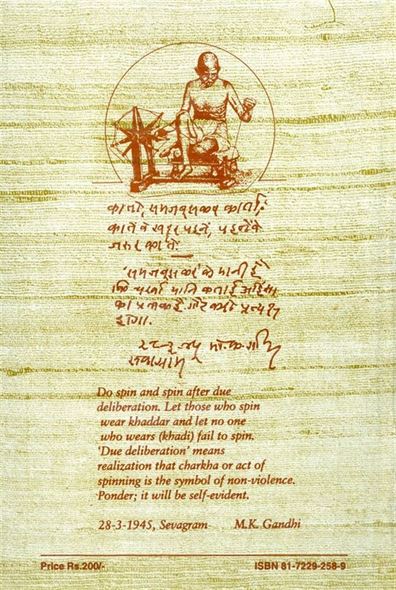 कातो, समजबुझकर कातो;
काते वे खद्दर पहनें, पहनें वे
जरूर कातें.
'समजबुझकर' के मानी है
कि चरखा यानि कताई अहिंसा
का प्रतीक है. गौर करो प्रत्यक्ष
होगा.
मो.क.गांधी
सेवाग्राम
Do spin and spin after due
deliberation. Let those who spin
wear khaddar and let no one
who wears (khadi) fail to spin.
'Due deliberation' means
realization that charkha or act of
spinning is the symbol of non-violence.
Ponder; it will be self-evident.
28-3-1945, Sevagram M.K. Gandhi
Price Rs.200/- ISBN 81-7229-258-9